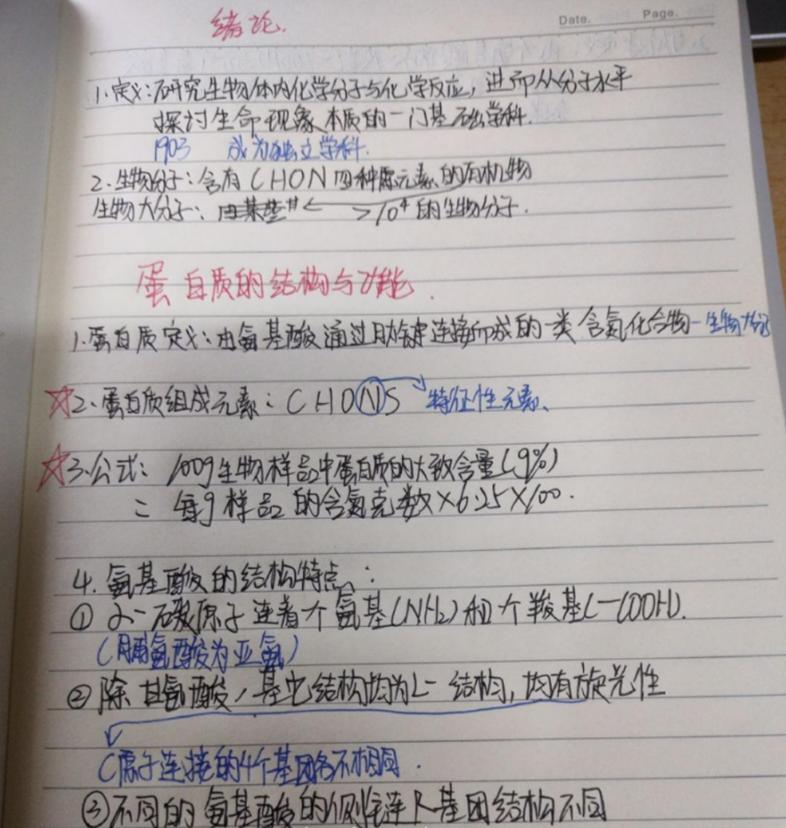 绪论.
Date. Page.
1.定义:研究生物体内化学分子与化学反应,进而从分子水平
探讨生命现象本质的一门基础学科.
1903 成为独立学科.
2.生物分子:含有CHON四种原元素的有机物
生物大分子: >10⁴的生物分子.
蛋白质的结构与功能.
1.蛋白质定义:由氨基酸通过肽键连接而成的一类含氮化合物-生物大分子
☆2.蛋白质组成元素:CHONS 特征性元素、
☆3.公式: 100g生物样品中蛋白质的大致含量(g%)
= 每g样品的含氮克数×6.25×100.
4.氨基酸的结构特点:
① α-碳原子连着个氨基(NH₂)和个羧基(-COOH).
(脯氨酸为亚氨)
②除甘氨酸,其它结构均为L-结构,均有旋光性
C原子连接的4个基团各不相同.
③不同的氨基酸的侧链R基团结构不同